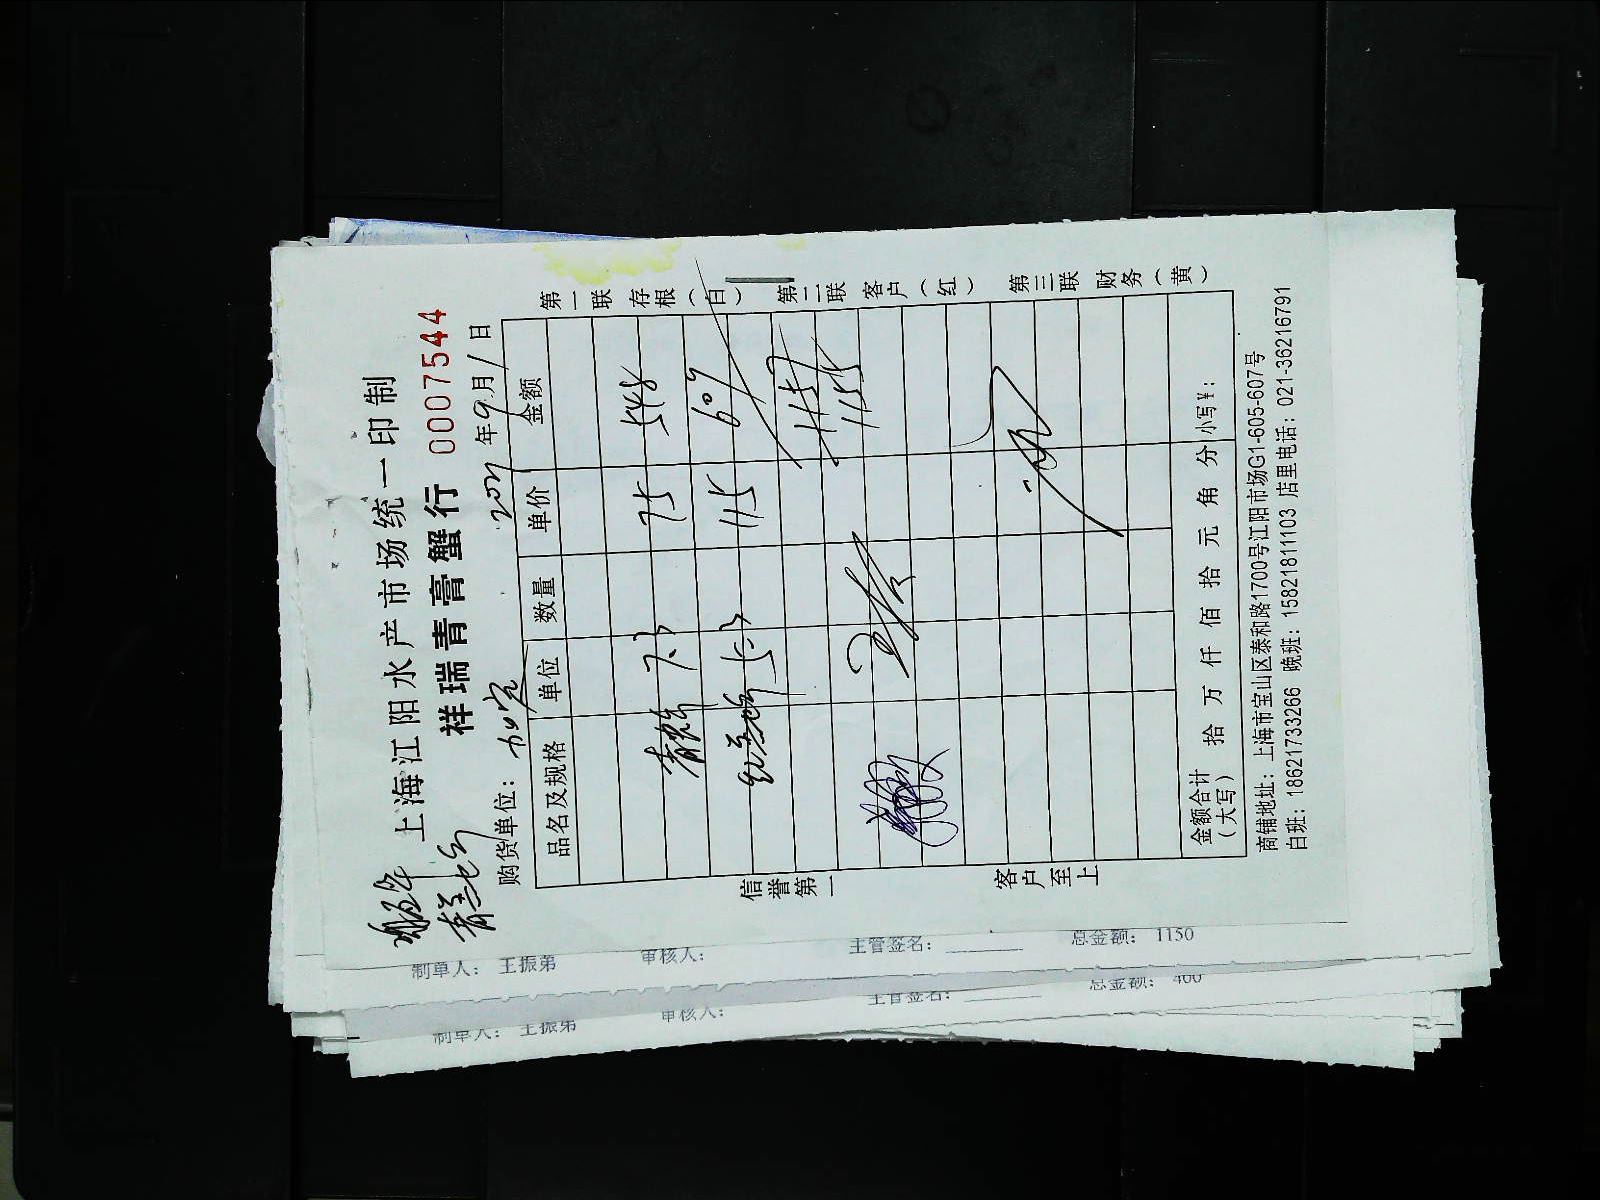 上海江阳水产市场统一印制
祥瑞青膏蟹行 0007544
购货单位： 年9月1日
品名及规格 单位 数量 单价 金额
青蟹 7.3 75 548
红膏蟹 5.3 115 609
1157
1155
金额合计（大写） 拾 万 仟 佰 拾 元 角 分 小写￥：
商铺地址：上海市宝山区泰和路1700号江阳市场G1-605-607号
白班：18621733266 晚班：15821811103 店里电话：021-36216791
第一联 存根（白） 第二联 客户（红） 第三联 财务（黄）
信誉第一 客户至上
制单人： 王振弟 审核人： 主管签名： 总金额： 1150
制单人： 王振弟 审核人： 主管签名： 总金额： 400